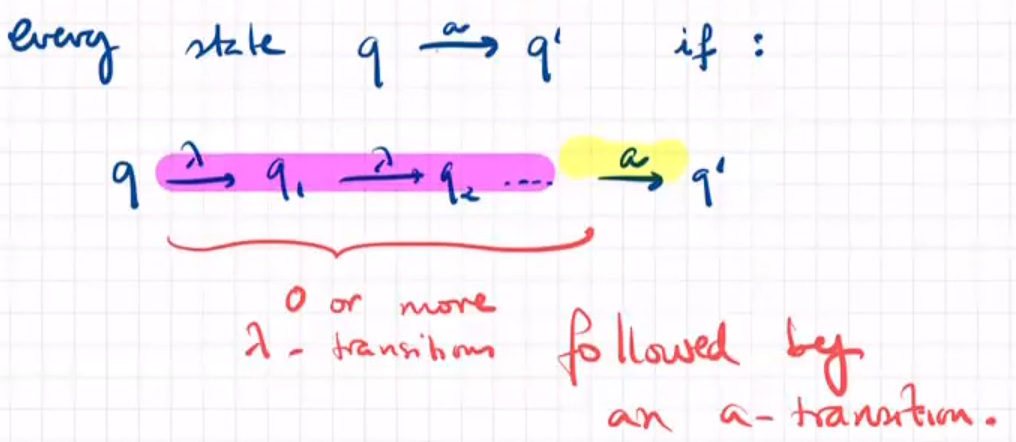 every state q a→ q' if :
q λ→ q₁ λ→ q₂ .... a→ q'
0 or more
λ - transitions followed by
an a-transition.